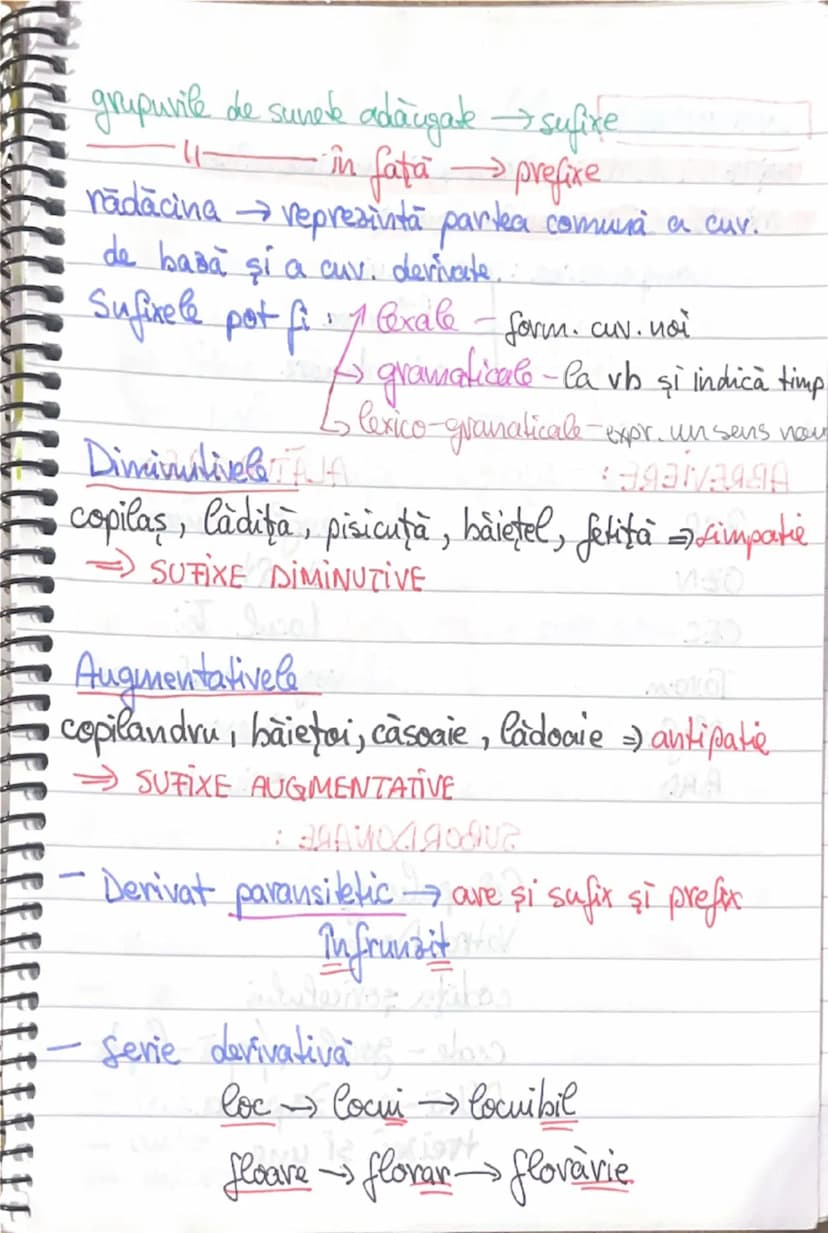 grupurile de sunete adăugate → sufixe
—— 〃 —— în față → prefixe
rădăcina → reprezintă partea comună a cuv.
de bază și a cuv. derivate.
Sufixele pot fi : → lexale – form. cuv. noi
→ gramaticale – la vb și indică timp
→ lexico-gramaticale – expr. un sens nou
Diminutivele
copilaș, lădiță, pisicuță, băiețel, fetiță ⇒ simpatie
⇒ SUFIXE DIMINUTIVE
Augmentativele
copilandru, băiețoi, căsoaie, lădoaie ⇒ antipatie
⇒ SUFIXE AUGMENTATIVE
– Derivat paransitetic → are și sufix și prefix
înfrunzit
– Serie derivativă
loc → locui → locuibil
floare → florar → florărie